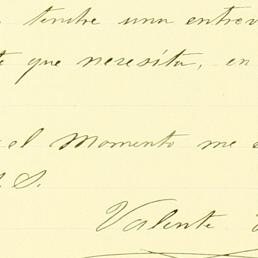 tendre una entrev
que necesita, en
el Momento me
S. S.
Valente